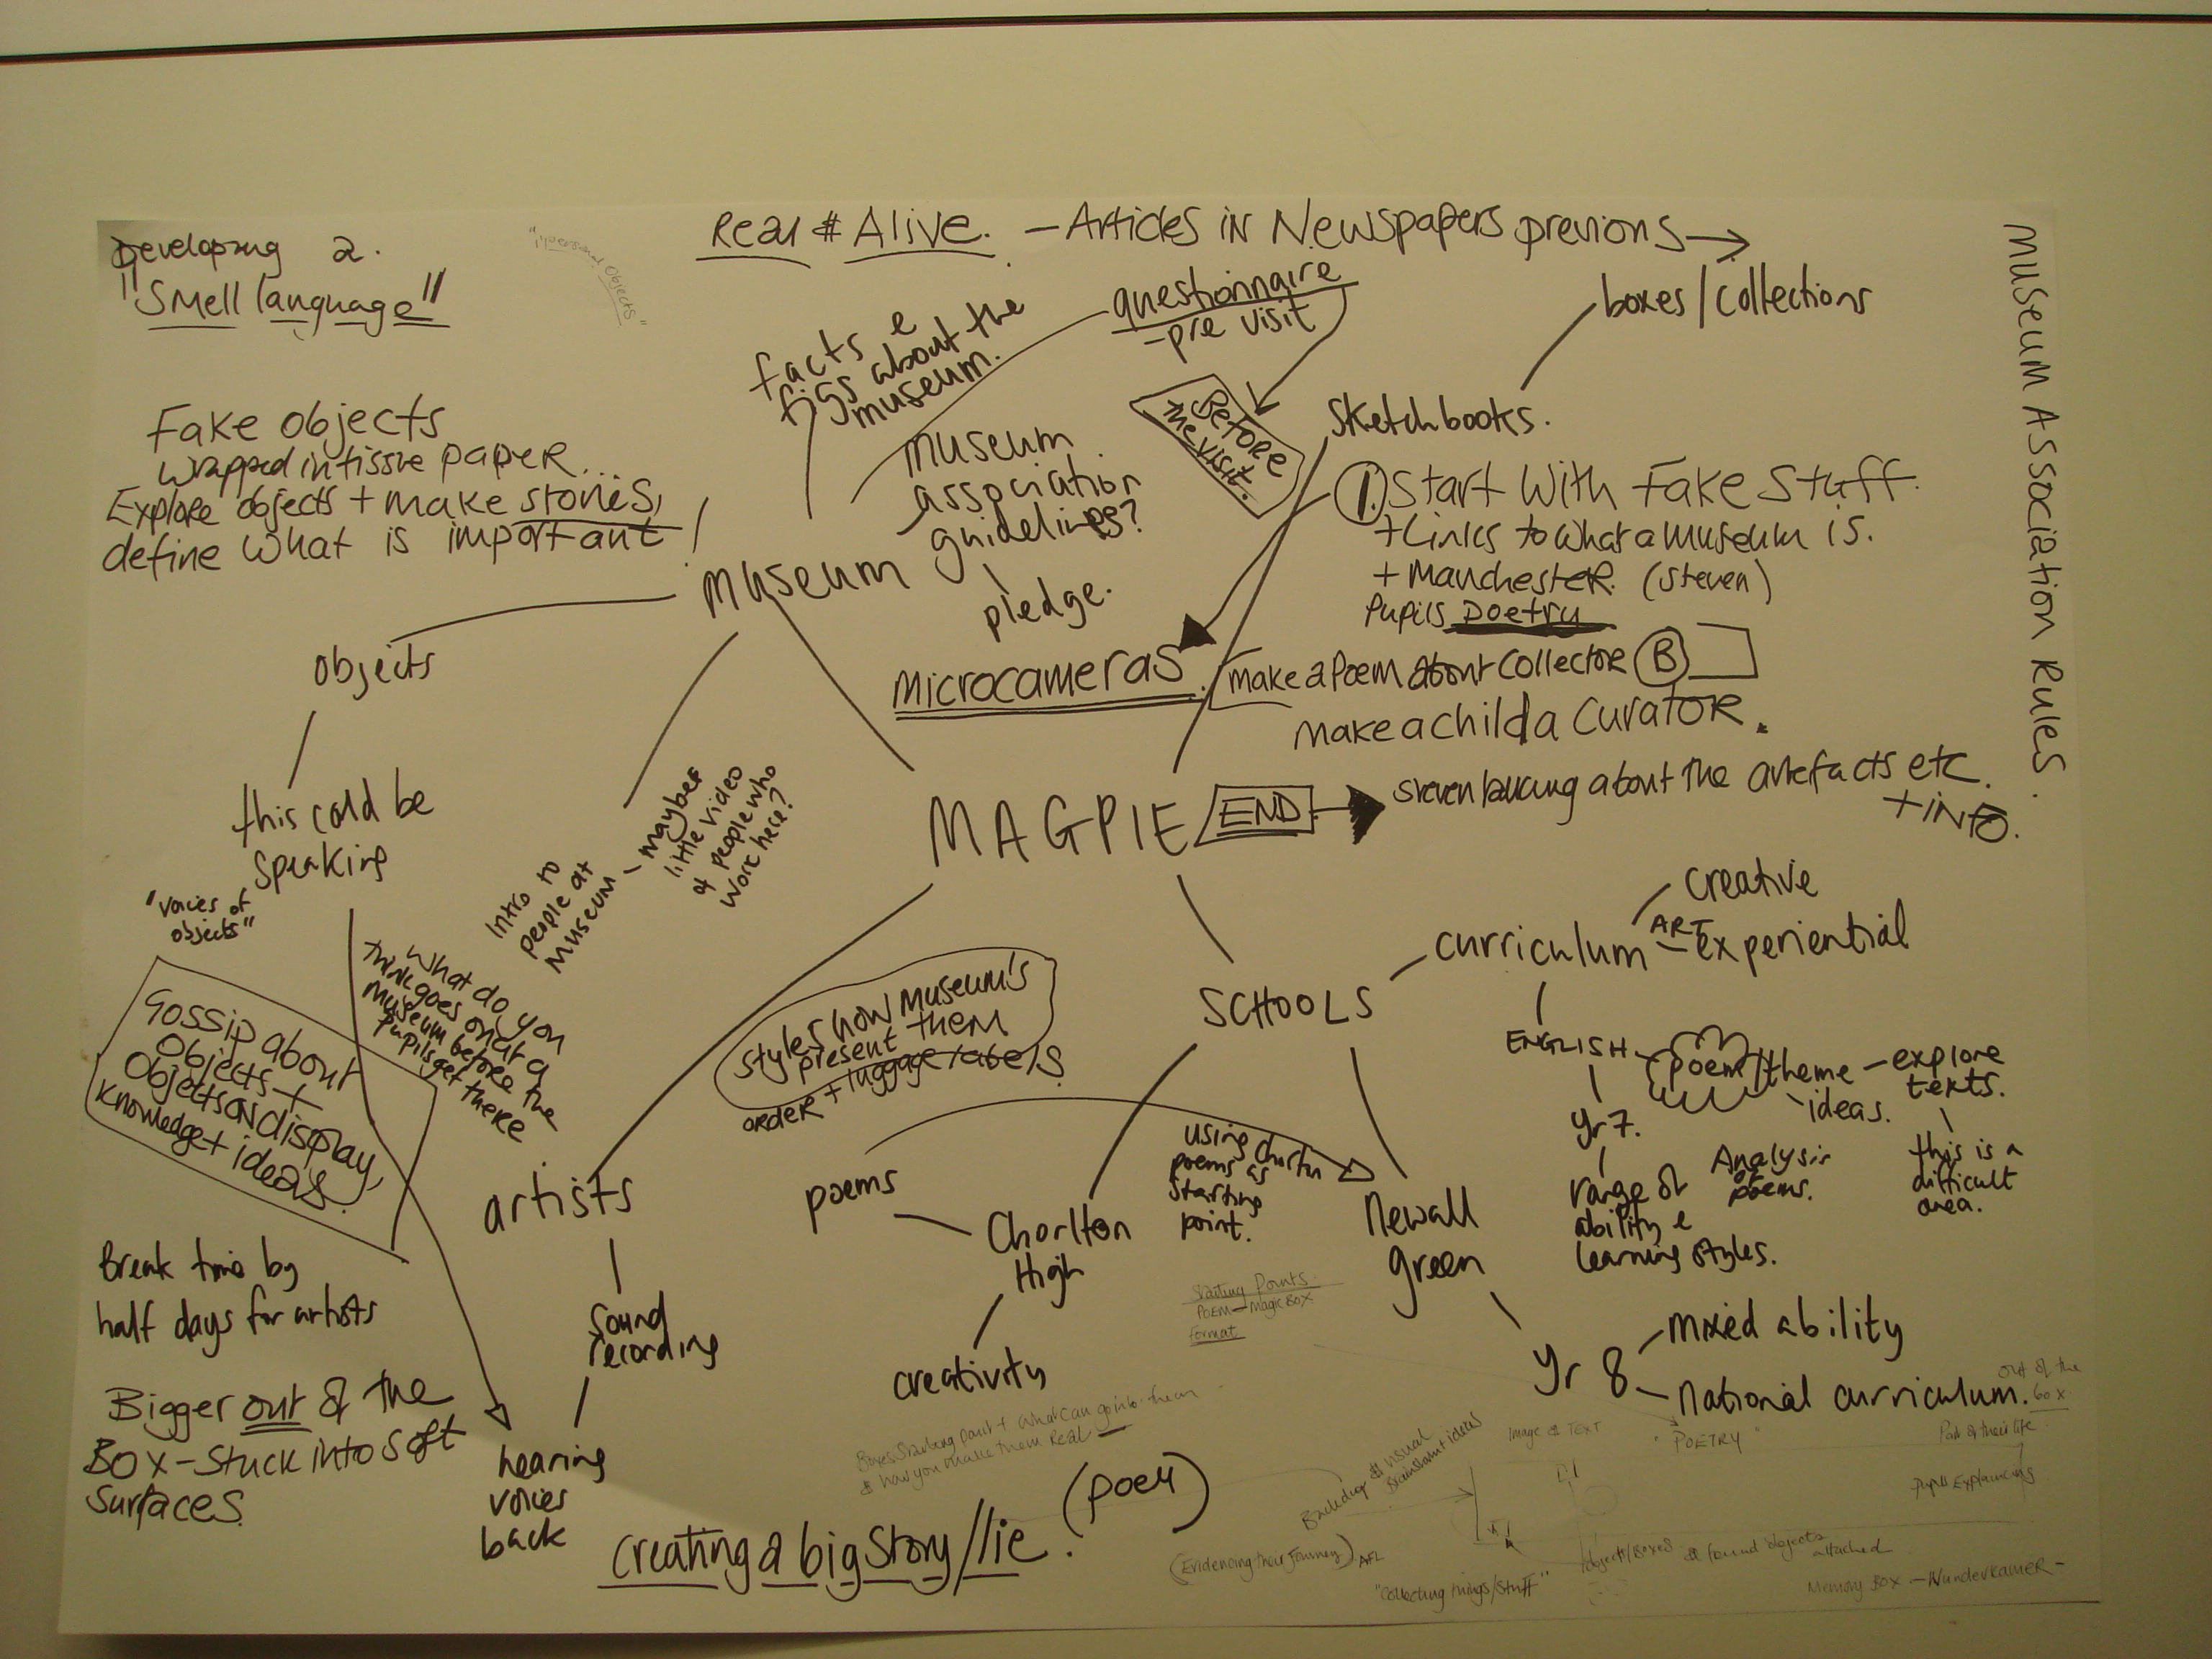 Developing a.
"Smell language"
"personal Objects"
Real # Alive. - Articles in Newspapers previous
questionnaire
- pre visit
boxes/collections
Museum Association Rules.
facts e
figs about the
museum.
Before
the visit.
sketchbooks.
Fake objects
wrapped in tissue paper...
Explore objects + make stories,
define what is important!
museum
association
guidelines?
pledge.
1. Start with Fake Stuff.
+ Links to what a museum is.
+ Manchester. (Steven)
Pupils poetry
museum
Microcameras.
make a Poem about Collector B
make a child a Curator.
objects
this could be
speaking
"voices of
objects"
MAGPIE
END
Steven talking about the artefacts etc.
+ INFO.
Intro to
people at
museum
- maybe
little video
of people who
work here?
What do you
think goes on at a
museum before the
pupils get there
Gossip about
Objects +
Objects on display,
knowledge + ideas.
styles how Museum's
present them
order + luggage labels.
SCHOOLS
curriculum
creative
ART
- experiential
ENGLISH
poem/theme
- explore
texts.
ideas.
this is a
difficult
area.
yr 7.
range of
ability e
learning styles.
Analysis
of
poems.
artists
poems
Chorlton
High
using
poems as
starting
point.
Newall
green
Break time by
half days for artists
sound
recording
creativity
Starting Points-
POEM - Magic Box
Format
yr 8
mixed ability
National curriculum.
Bigger out of the
Box - Stuck into soft
surfaces.
hearing
voices
back
Boxes Starting point + what can go into them
& how you make them Real
creating a big story/lie. (poem)
Image & TEXT
"POETRY"
out of the
box
Part of their life
Pupils Explaining
Backdrop & visual
Brainstorm ideas
(Evidencing their Journey) AFL
"Collecting things/stuff"
objects/Boxes & found objects
attached
Memory Box - Wunderkamer -